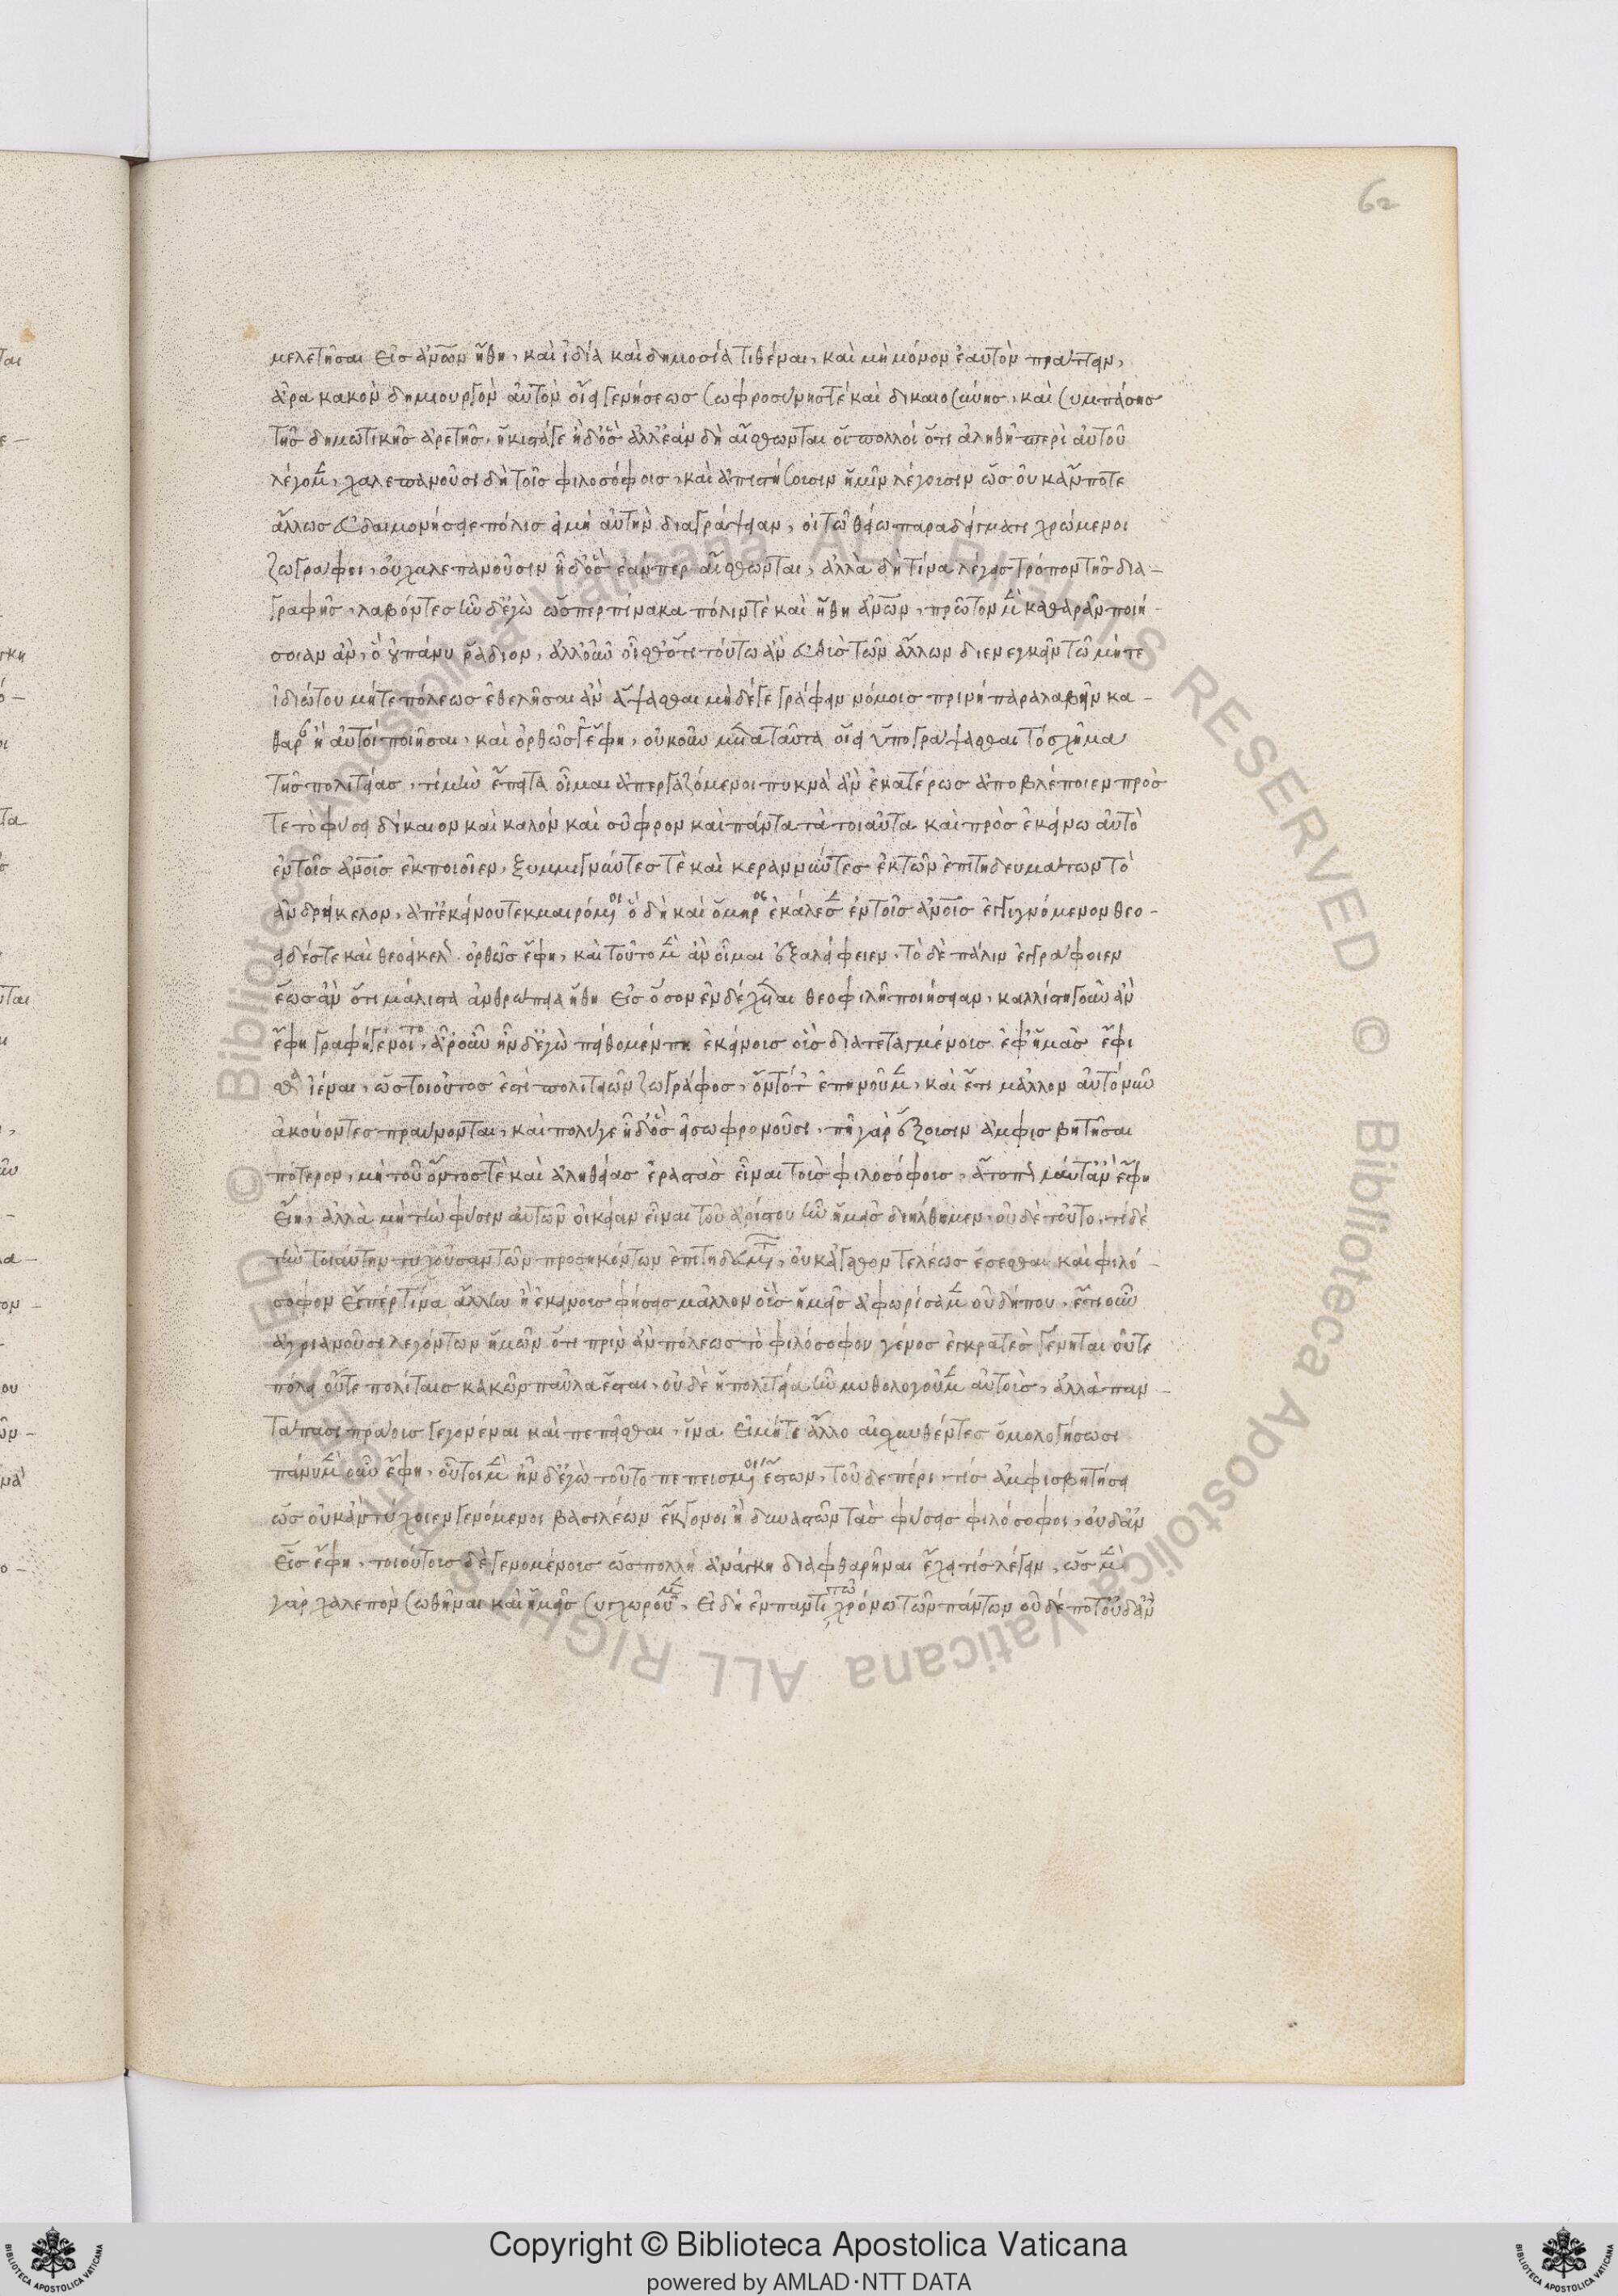 62
μελετῆσαι εἰς ἀν̅ω̅ν ἤθη, καὶ ἰδία καὶ δημοσία τιθέναι, καὶ μὴ μόνον ἑαυτὸν πράττειν,
ἆρα κακὸν δημιουργὸν αὐτὸν οἴει γενήσεως σωφροσύνης τὲ καὶ δικαιοσύνης, καὶ συμπάσης
τῆς δημωτικῆς ἀρετῆς, ἥκιστά γε ἦ δ' ὅς ἀλλ' ἐὰν δὴ αἴσθωνται οἱ πολλοὶ ὅτι ἀληθῆ περὶ αὐτοῦ
λέγομ, χαλεπανοῦσι δὴ τοῖς φιλοσόφοις, καὶ ἀπιστήσουσιν ἡμῖν λέγουσιν ὡς οὐκ ἄν ποτε
ἄλλως εὐδαιμονήσειε πόλις εἰ μὴ αὐτὴν διαγράψειαν, οἱ τῶ θείω παραδείγματι χρώμενοι
ζωγράφοι, οὐ χαλεπανοῦσιν ἦ δ' ὅς ἐάν περ αἴσθωνται, ἀλλὰ δὴ τίνα λέγεις τρόπον τῆς δια-
γραφῆς, λαβόντες ἦν δ' ἐγὼ ὥσπερ πίνακα πόλιν τὲ καὶ ἤθη ἀν̅ω̅ν, πρῶτον μ̅ὲ καθαρὰν ποιή-
σειαν ἂν, ὃ οὐ πάνυ ῥάδιον, ἀλλ' οὖν οἶσθ' ὅτι τούτω ἂν εὐθὺς τῶν ἄλλων διενεγκεῖν τῶ μήτε
ἰδιώτου μήτε πόλεως ἐθελῆσαι ἂν ἅψασθαι μηδέ γε γράφειν νόμοις πρινὴ παραλαβεῖν κα-
θαρ ἢ αὐτοὶ ποιῆσαι, καὶ ὀρθῶς γ' ἔφη, οὐκοῦν μετὰ ταῦτα οἴει ὑπογράψασθαι τὸ σχῆμα
τῆς πολιτείας, τί μὴν ἔπειτα οἶμαι ἀπεργαζόμενοι πυκνὰ ἂν ἑκατέρως ἀποβλέποιεν πρός
τε τὸ φύσει δίκαιον καὶ καλὸν καὶ σῶφρον καὶ πάντα τὰ τοιαῦτα καὶ πρὸς ἐκείνω αὐτὸ
ἐν τοῖς ἀν̅ο̅ις ἐκποιοῖεν, ξυμμιγνύντες τὲ καὶ κεραννύντες ἐκ τῶν ἐπιτηδευμάτων τὸ
ἀνδρείκελον, ἀπ' ἐκείνου τεκμαιρόμ^οι ὃ δὴ καὶ ὅμηρ^ος ἐκάλεσ ἐν τοῖς ἀν̅ο̅ις ἐγγιγνόμενον θεο-
ειδές τε καὶ θεοείκελ ὀρθῶς ἔφη, καὶ τοῦτο μ̅ὲ ἂν οἶμαι ἐξαλείφειεν, τὸ δὲ πάλιν ἐγγράφοιεν
ἕως ἂν ὅτι μάλιστα ἀνθρώπεια ἤθη εἰς ὅσον ἐνδέχεται θεοφιλῆ ποιήσειαν, καλλίστη γοῦν ἂν
ἔφη γραφὴ γένοιτ^ο, ἆρ' οὖν ἦν δ' ἐγὼ πείθομέν πη ἐκείνοις οἷς διατεταγμένοις ἐφ' ἡμᾶς ἔφι
σθ^α ἰέναι, ὡς τοιοῦτος ἐστὶ πολιτειῶν ζωγράφος, ὃν τότ' ἐπῃνοῦμ, καὶ ἔτι μᾶλλον αὐτὸ νῦν
ἀκούοντες πραΰνονται, καὶ πολύ γε ἦ δ' ὅς εἰ σωφρονοῦσι, πῆ γὰρ ἕξουσιν ἀμφισβητῆσαι
πότερον, μὴ τοῦ ὄντος τὲ καὶ ἀληθείας ἐραστὰς εἶναι τοὺς φιλοσόφοις, ἄτοπ μέντ' ἂν ἔφη
εἴη, ἀλλὰ μὴ τὴν φύσιν αὐτῶν οἰκείαν εἶναι τοῦ ἀρίστου ἣν ἡμεῖς διήλθομεν, οὐδὲ τοῦτο, τί δὲ
τὴν τοιαύτην τυχοῦσαν τῶν προσηκόντων ἐπιτηδευμ, οὐκ ἀγαθὸν τελέως ἔσεσθαι καὶ φιλό-
σοφον εἴπέρ τινα ἄλλην ἢ ἐκείνοις φήσεις μᾶλλον οὓς ἡμεῖς ἀφωρίσαμ οὐ δήπου, ἔτι οὖν
ἀγριανοῦσι λεγόντων ἡμῶν ὅτι πρὶν ἂν πόλεως τὸ φιλόσοφον γένος ἐγκρατὲς γένηται οὔτε
πόλει οὔτε πολίταις κακῶν παῦλα ἔσται, οὐδὲ ἡ πολιτεία ἣν μυθολογοῦμ αὐτοὺς, ἀλλὰ παν-
τάπασι πράους γεγονέναι καὶ πεπεῖσθαι, ἵνα εἰ μήτε ἄλλο αἰσχυνθέντες ὁμολογήσωσι
πάνυ μ̅ὲ οὖν ἔφη, οὗτοι μ̅ὲ ἦν δ' ἐγὼ τοῦτο πεπεισμ^οι ἔστων, τοῦ δε πέρι τίς ἀμφισβητήσει
ὡς οὐκ ἂν τύχοιεν γενόμενοι βασιλέων ἔκγονοι ἢ δυναστῶν τὰς φύσεις φιλόσοφοι, οὐδ' ἂν
εἷς ἔφη, τοιούτοις δὲ γενομένοις ὡς πολλὴ ἀνάγκη διαφθαρῆναι ἔχει τίς λέγειν, ὡς μ̅ὲ
γὰρ χαλεπὸν σωθῆναι καὶ ἡμεῖς συγχωροῦμ, εἰ δὴ ἐν παντὶ τῶ χρόνω τῶν πάντων οὐδέ ποτ' οὐδ' ἂν
Copyright © Biblioteca Apostolica Vaticana
powered by AMLAD·NTT DATA